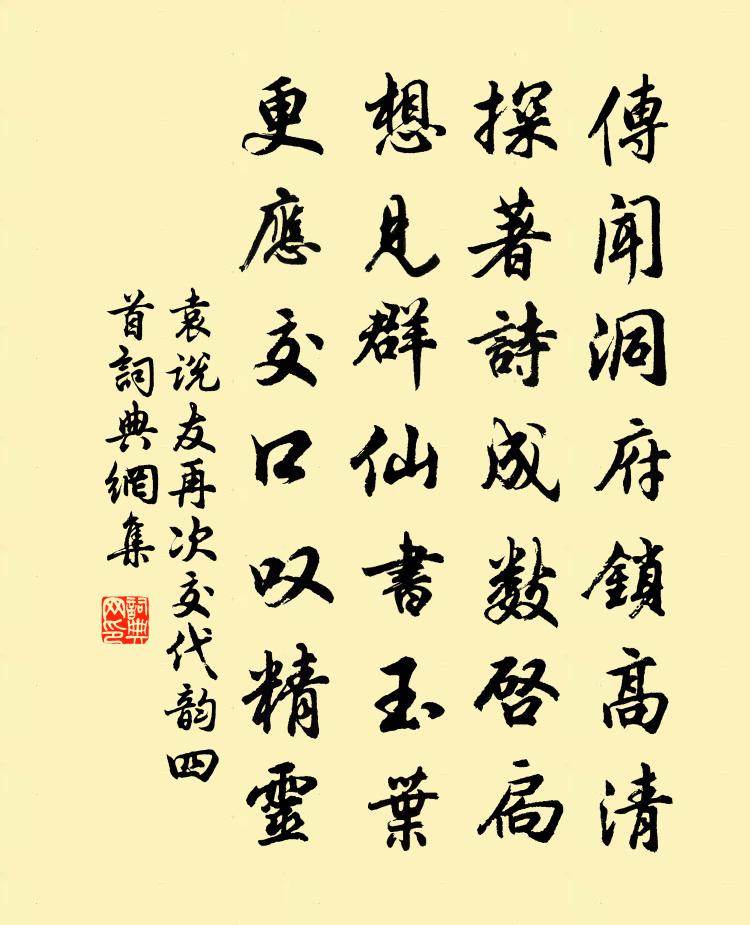 傳聞洞府鎖高清
探著詩成數啓扃
想見群仙書玉葉
更應交口叹精靈
袁说友再次交代韵四
首詞典網集
詞典网印